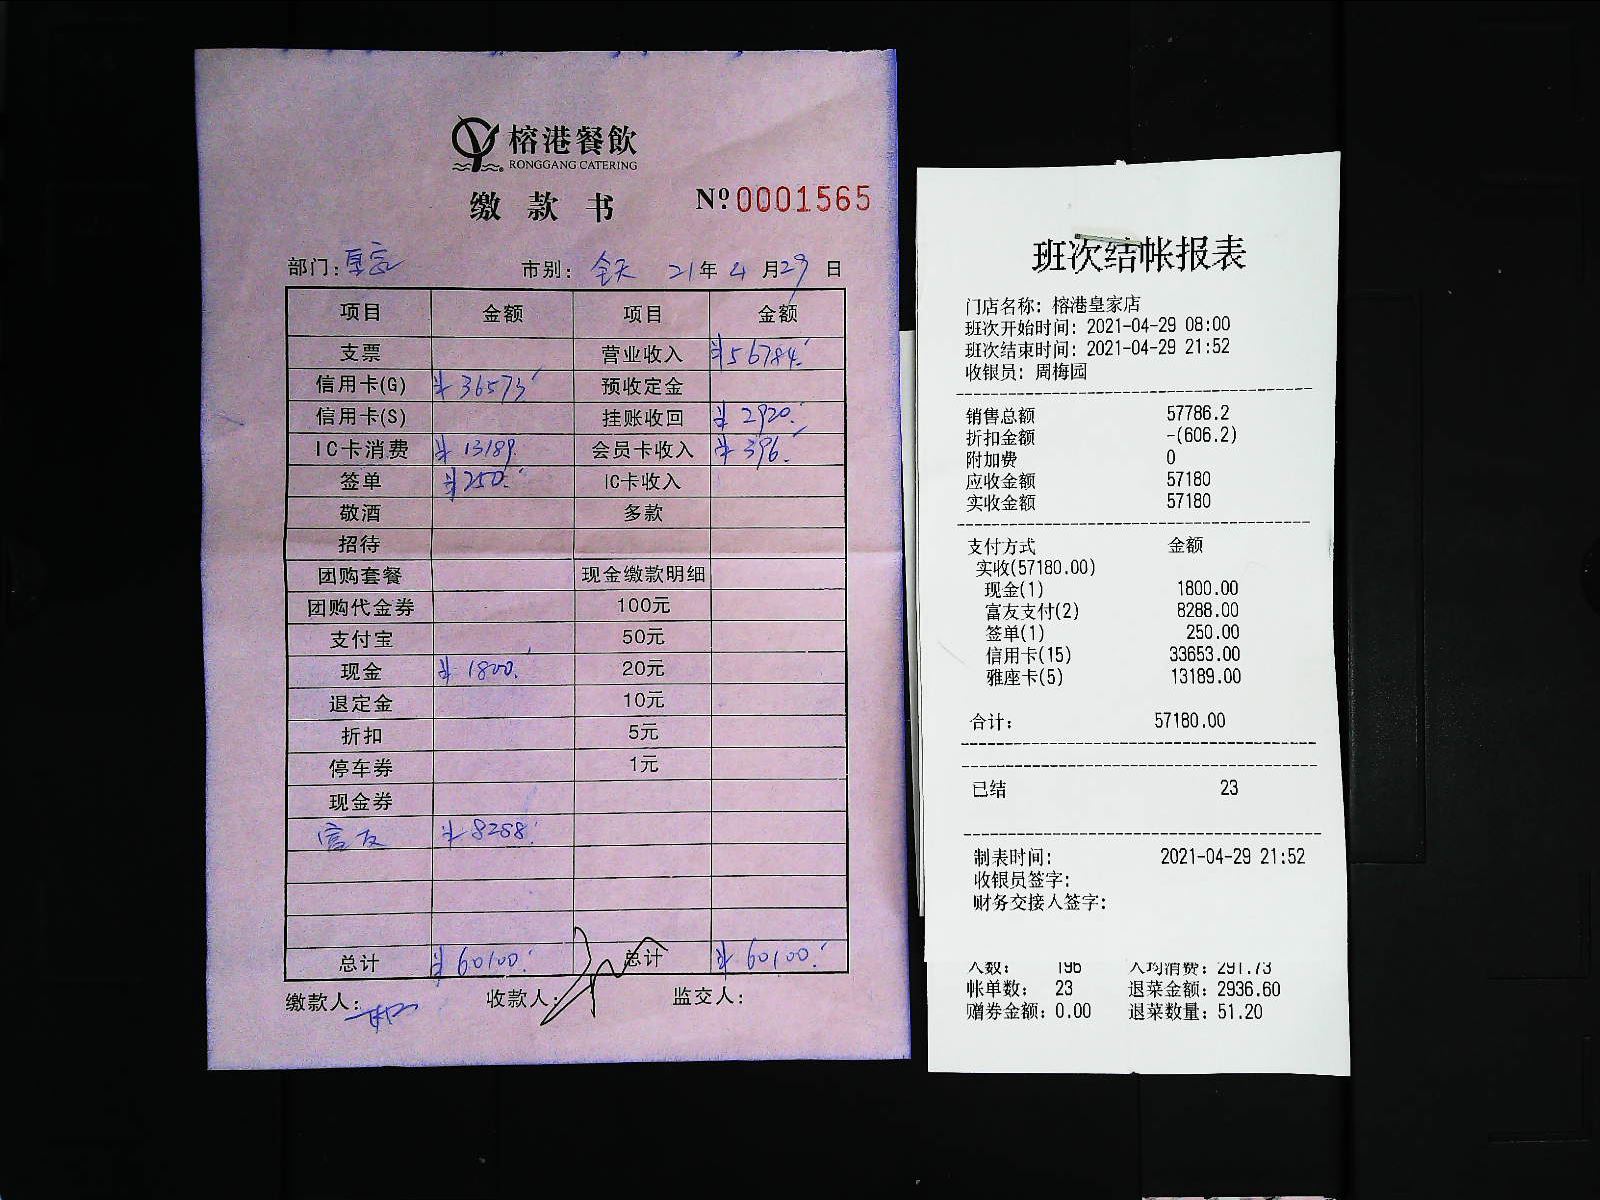 榕港餐飲
RONGGANG CATERING
缴款书 Nº0001565
部门：皇家 市别：全天 21年4月29日
项目 金额 项目 金额
支票 营业收入 ¥56784.
信用卡(G) ¥36573 预收定金
信用卡(S) 挂账收回 ¥2920.
IC卡消费 ¥13189. 会员卡收入 ¥396.
签单 ¥250. IC卡收入
敬酒 多款
招待
团购套餐 现金缴款明细
团购代金券 100元
支付宝 50元
现金 ¥1800. 20元
退定金 10元
折扣 5元
停车券 1元
现金券
富友 ¥8288.
总计 ¥60100. 总计 ¥60100.
缴款人： 收款人： 监交人：
班次结帐报表
门店名称: 榕港皇家店
班次开始时间: 2021-04-29 08:00
班次结束时间: 2021-04-29 21:52
收银员: 周梅园
销售总额 57786.2
折扣金额 -(606.2)
附加费 0
应收金额 57180
实收金额 57180
支付方式 金额
实收(57180.00)
现金(1) 1800.00
富友支付(2) 8288.00
签单(1) 250.00
信用卡(15) 33653.00
雅座卡(5) 13189.00
合计: 57180.00
已结 23
制表时间: 2021-04-29 21:52
收银员签字:
财务交接人签字:
人数: 196 人均消费: 291.73
帐单数: 23 退菜金额: 2936.60
赠券金额: 0.00 退菜数量: 51.20